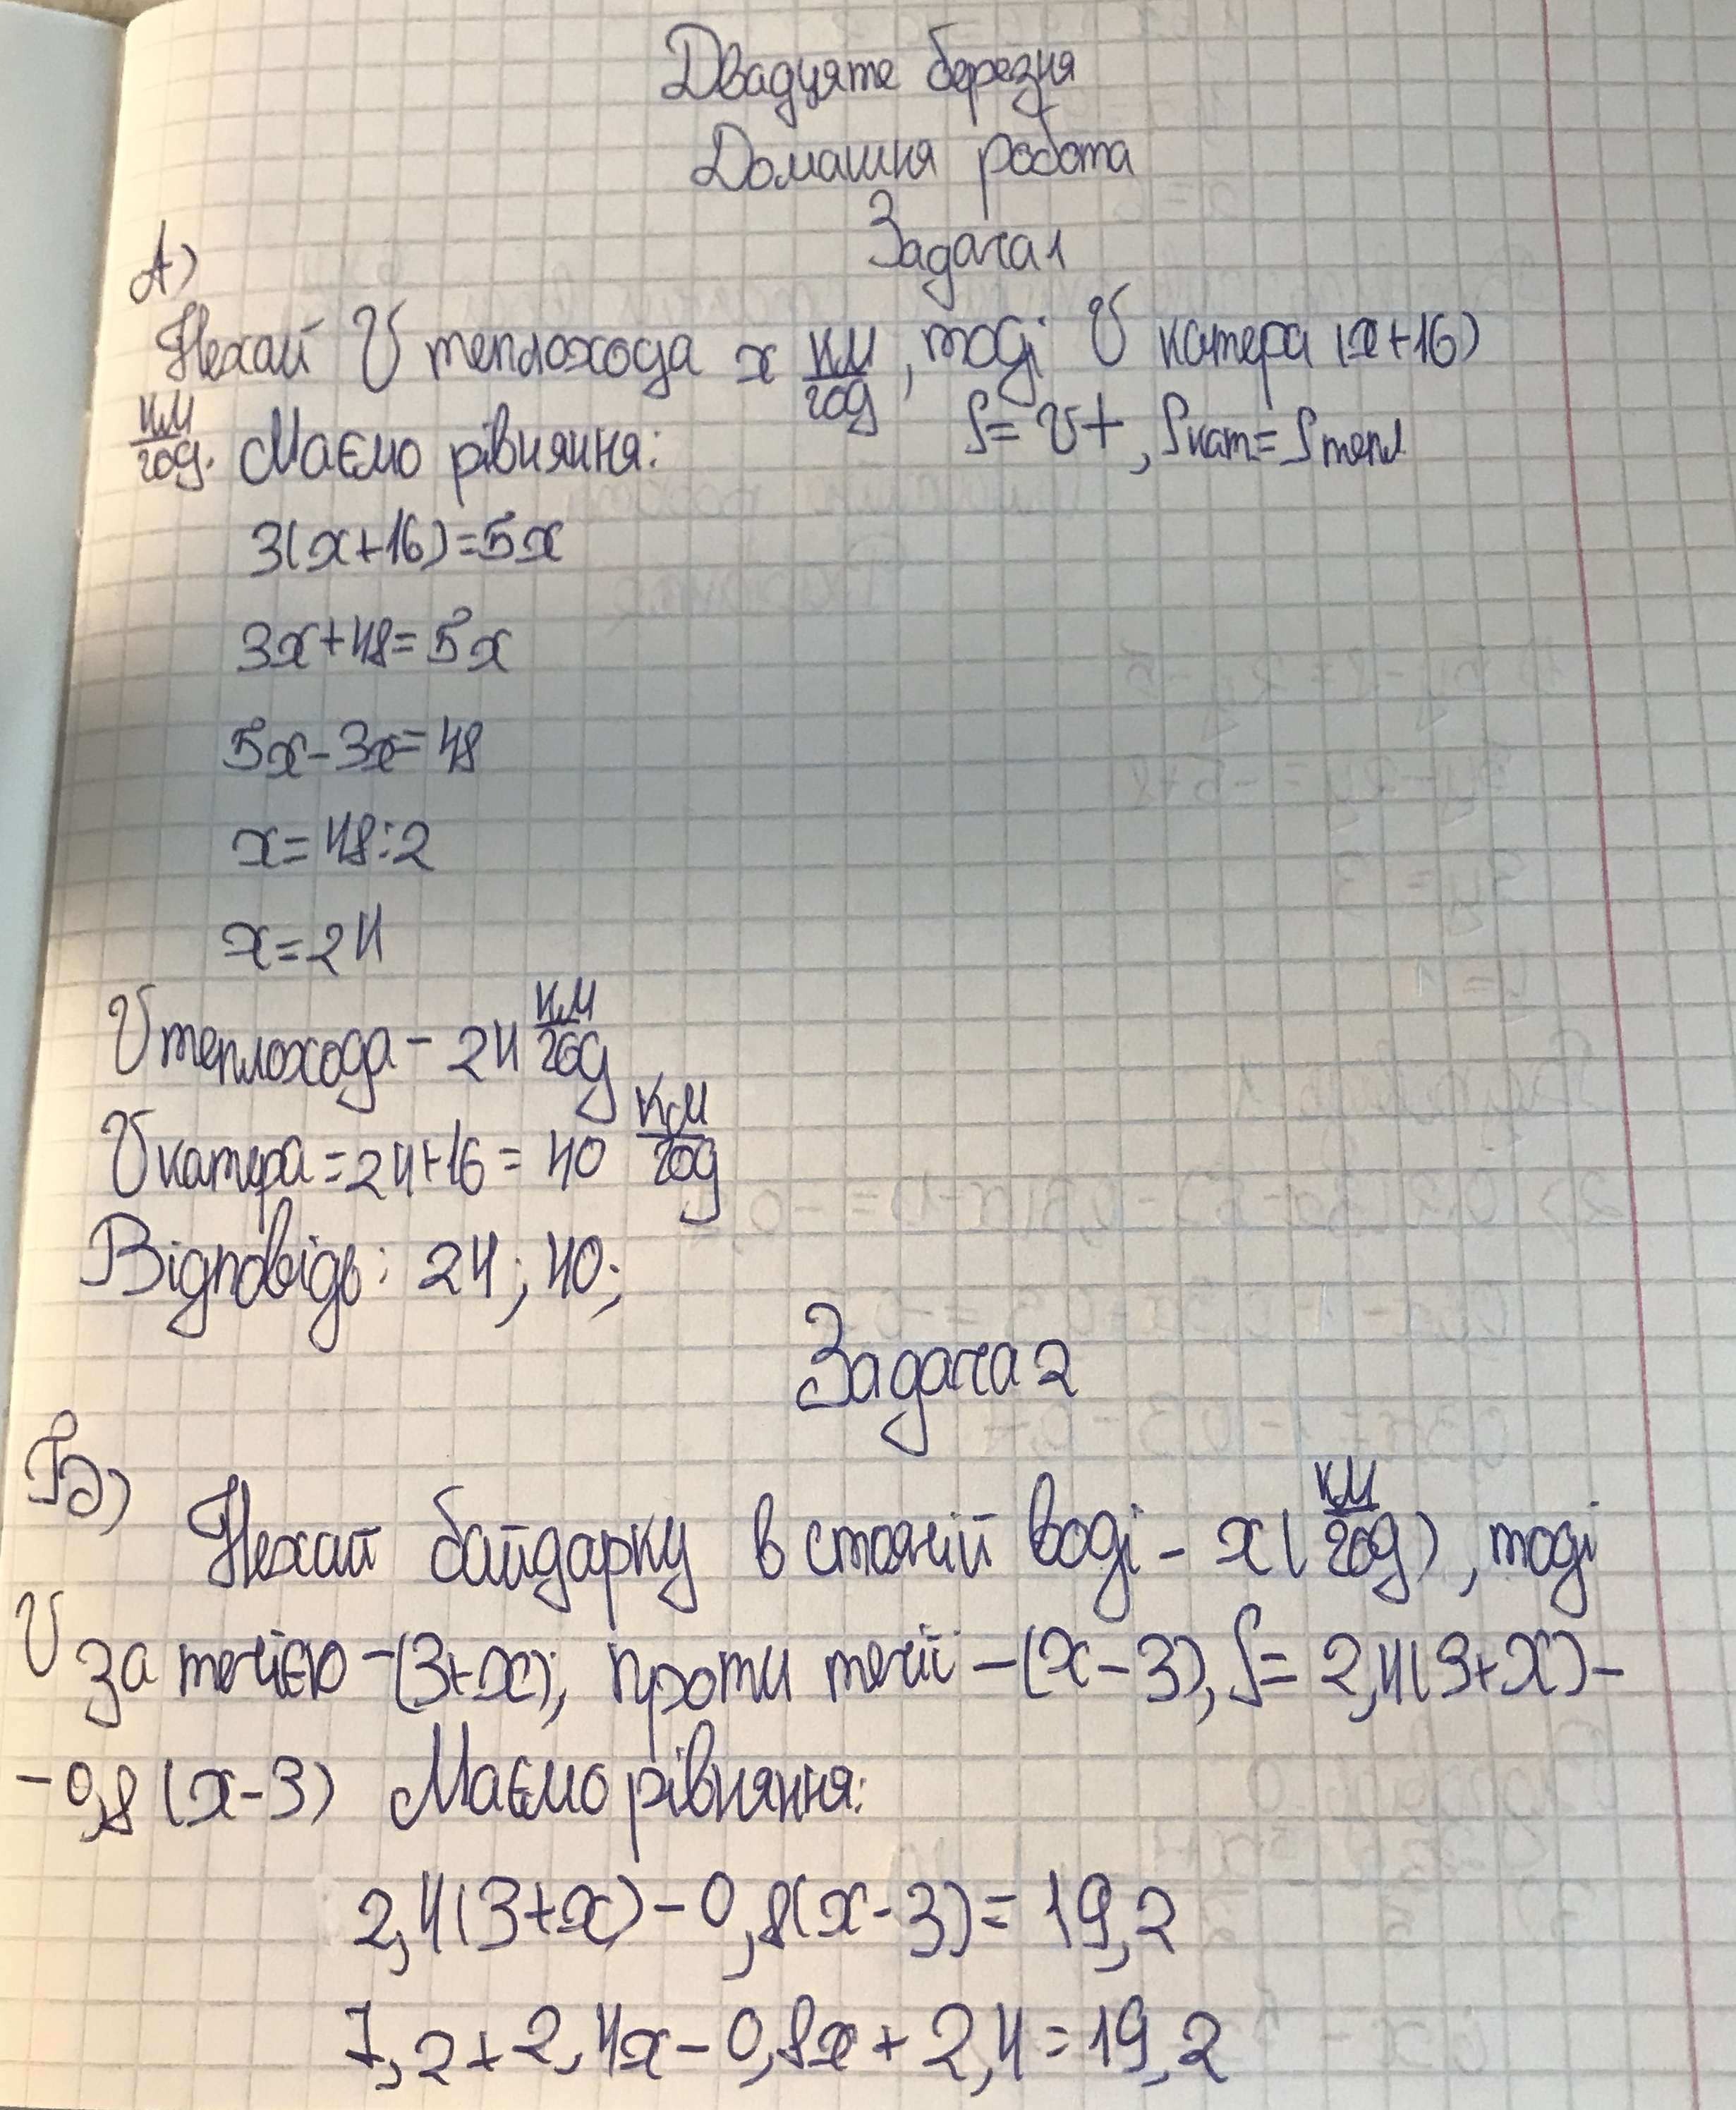 Двадцяте березня
Домашня робота
Задача 1
А)
Нехай V теплохода x км/год, тоді V катера (x+16)
км/год. Маємо рівняння: S=Vt, Sкат=Sтепл
3(x+16)=5x
3x+48=5x
5x-3x=48
x=48:2
x=24
V теплохода - 24 км/год
V катера = 24+16 = 40 км/год
Відповідь: 24; 40;
Задача 2
Б)
Нехай байдарку в стоячій воді - x (км/год), тоді
V за течією -(3+x), проти течії -(x-3), S= 2,4(3+x)-
-0,8(x-3) Маємо рівняння:
2,4(3+x)-0,8(x-3)=19,2
7,2+2,4x-0,8x+2,4=19,2